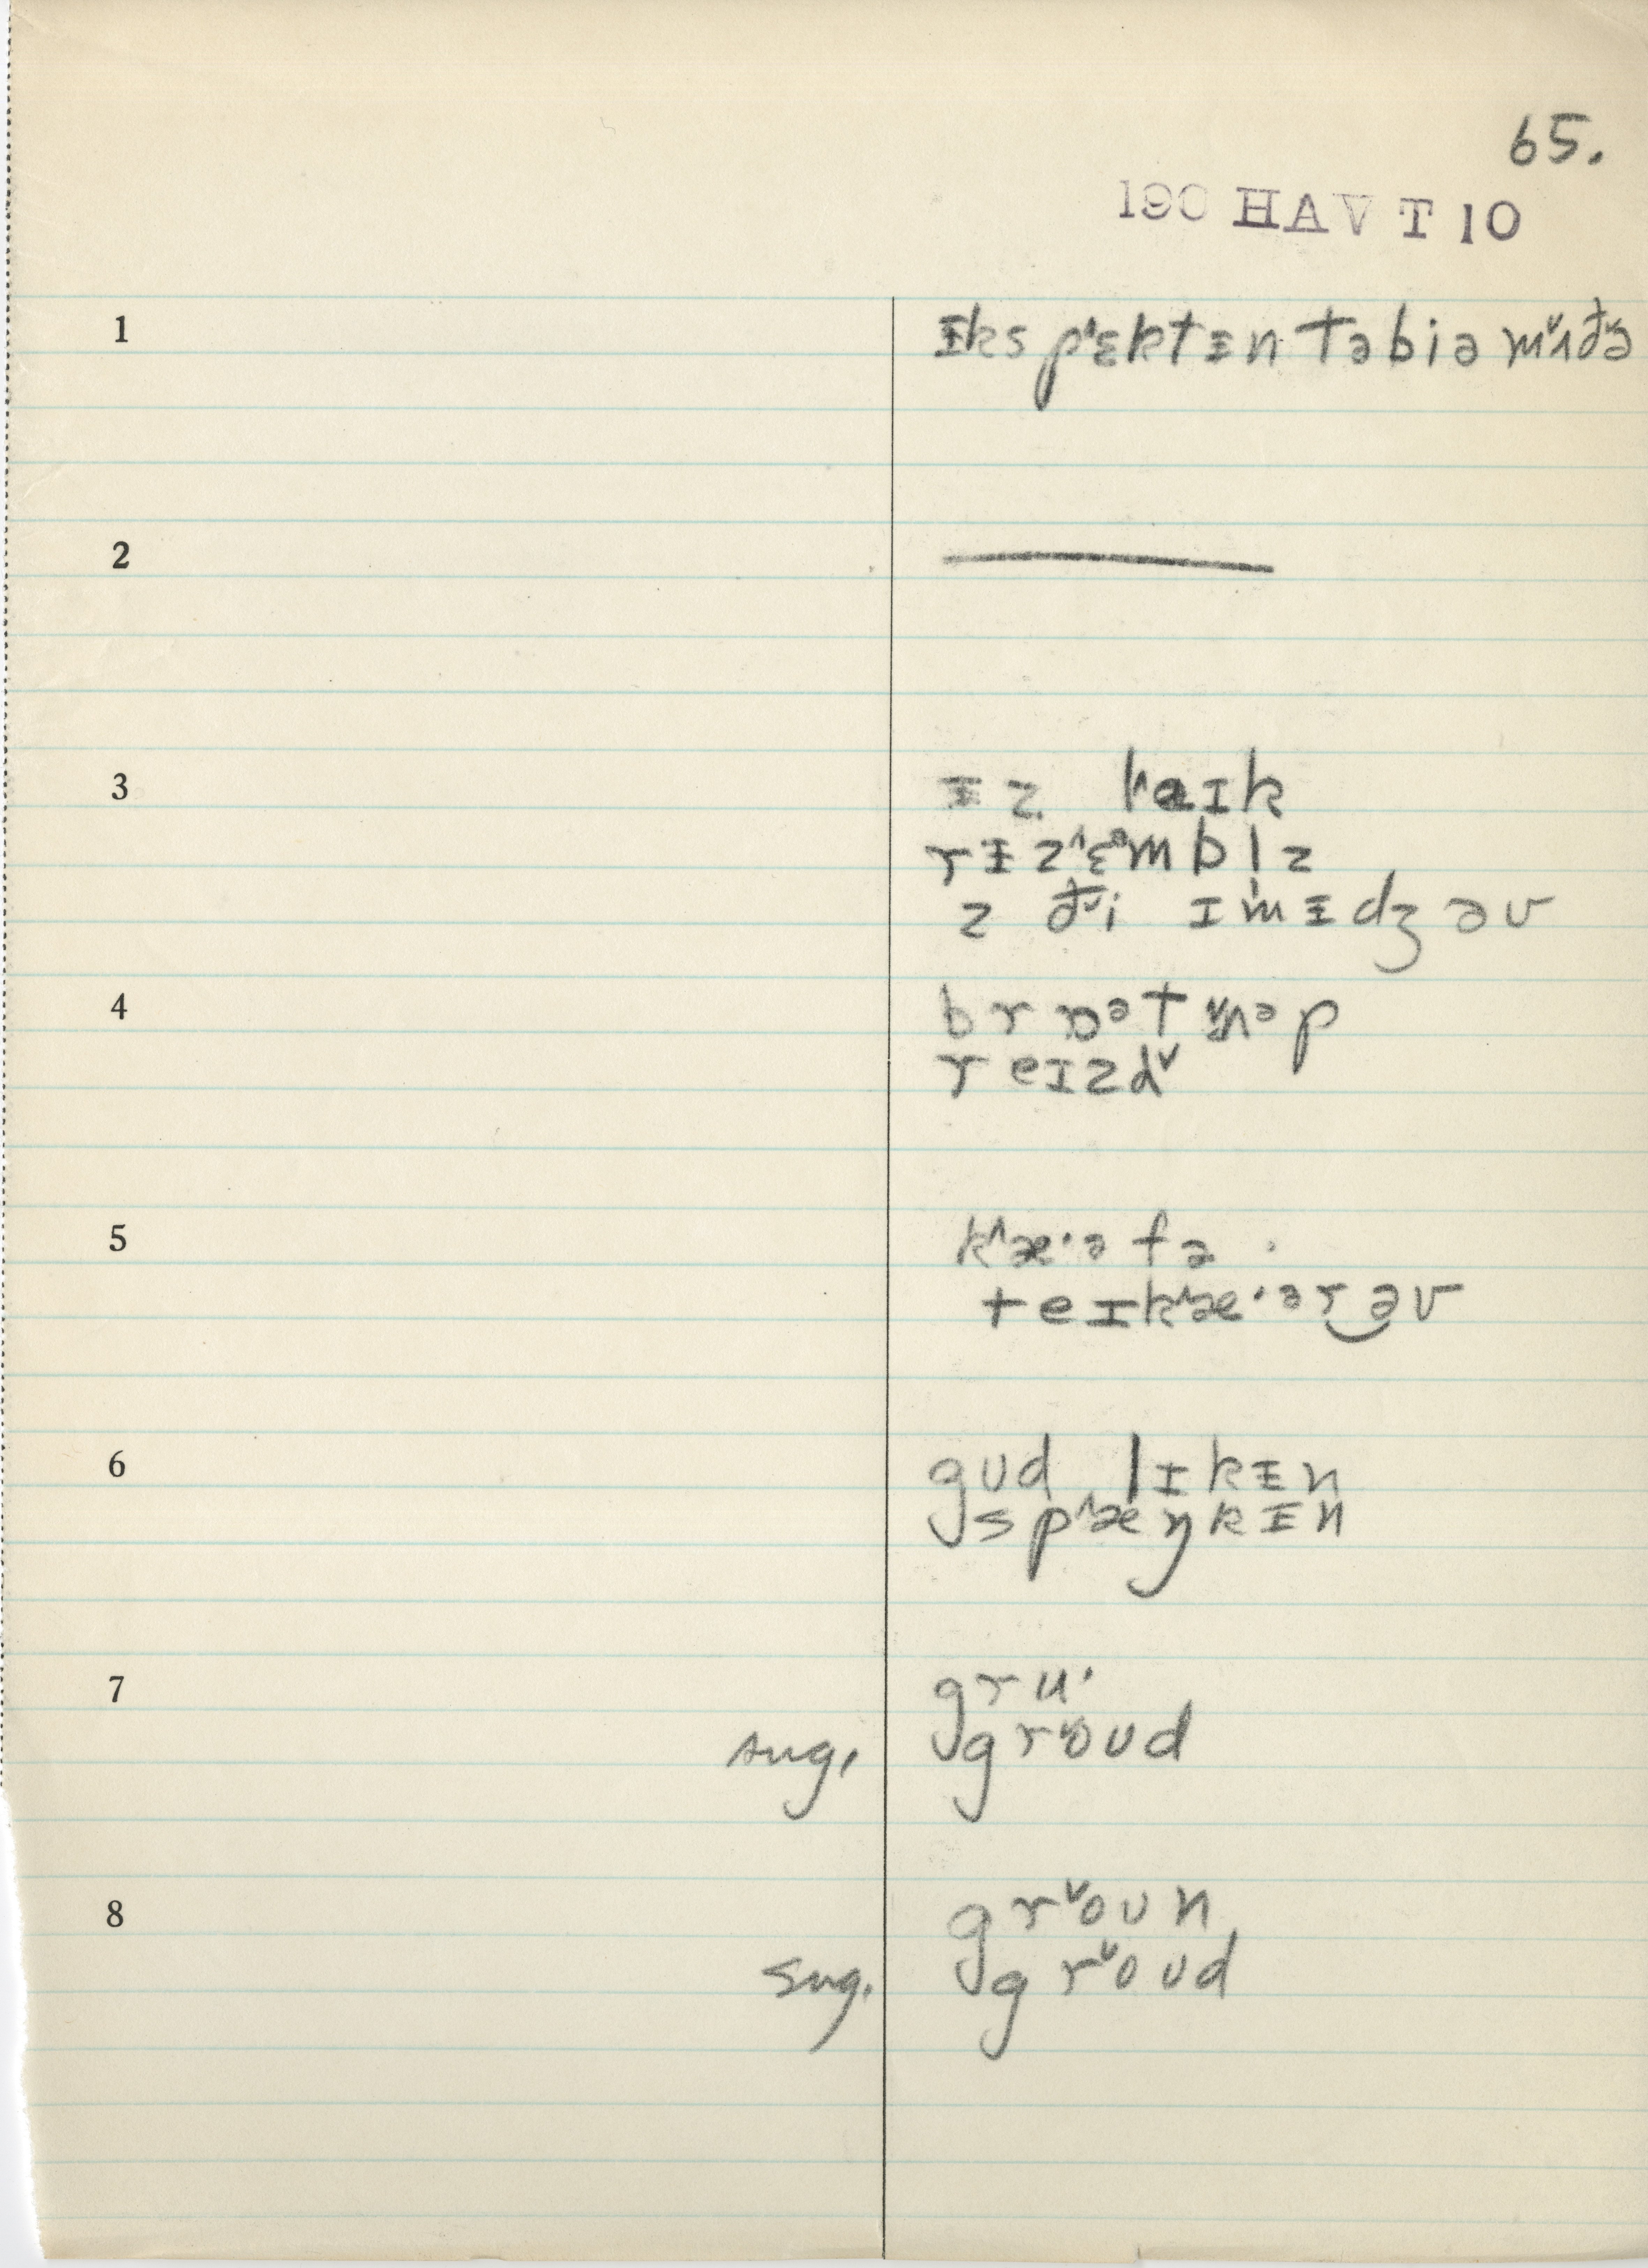 65.
190 HAV T 10
1 ᵻkspˈɛktᵻn təbiə mˇʌðˇə
2
3 ᵻz laɪk
rᵻzˈɛᵊmblz
z ðˇi ɪmᵻdʒ əv
4 brɒᵊt ˇʌᵊp
reɪzdˇ
5 k^æ·ə fə
teɪk^æ·ər‿əv
6 gud lɪkᵻn
spˈæŋkᵻn
7 gru·
sug. grˇoud
8 grˇoun
sug. grˇoud